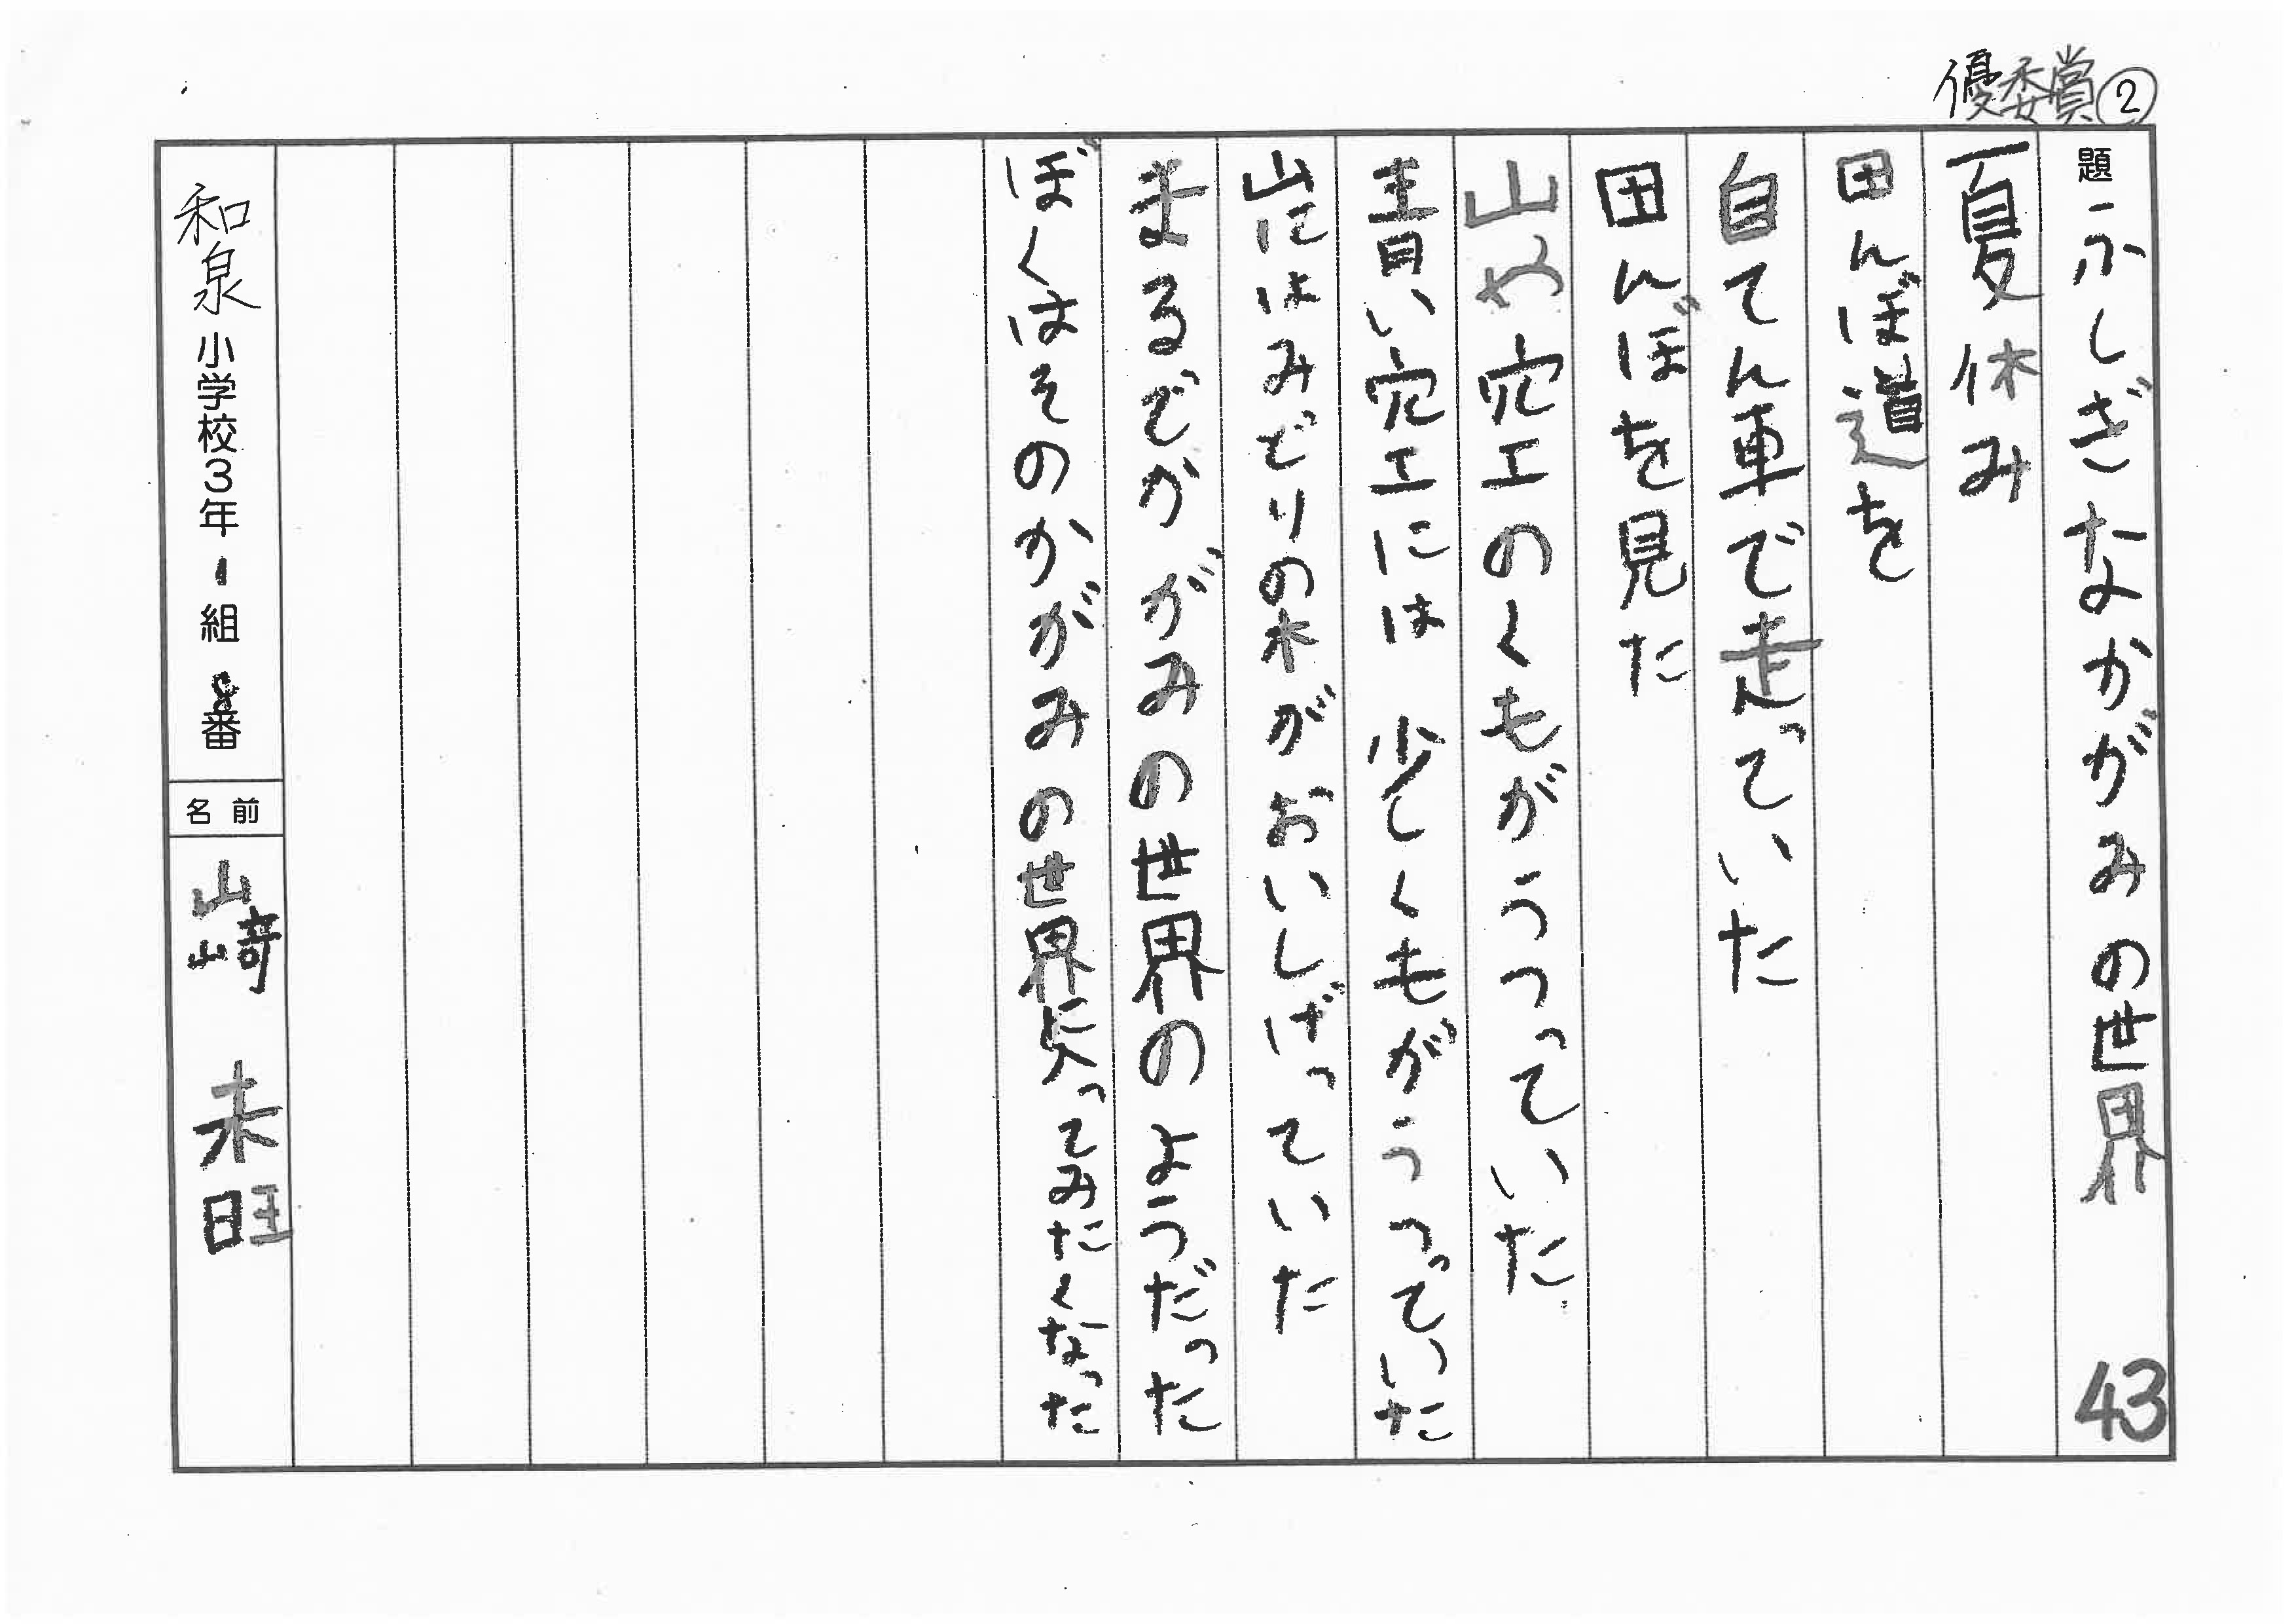 優委賞②
題 ふしぎなかがみの世界 43
夏休み
田んぼ道を
自てん車で走っていた
田んぼを見た
山や空のくもがうつっていた
青い空には 少しくもがうつっていた
山にはみどりの木がおいしげっていた
まるでかがみの世界のようだった
ぼくはそのかがみの世界に入ってみたくなった
和泉小学校3年1組8番 名前 山崎 未旺